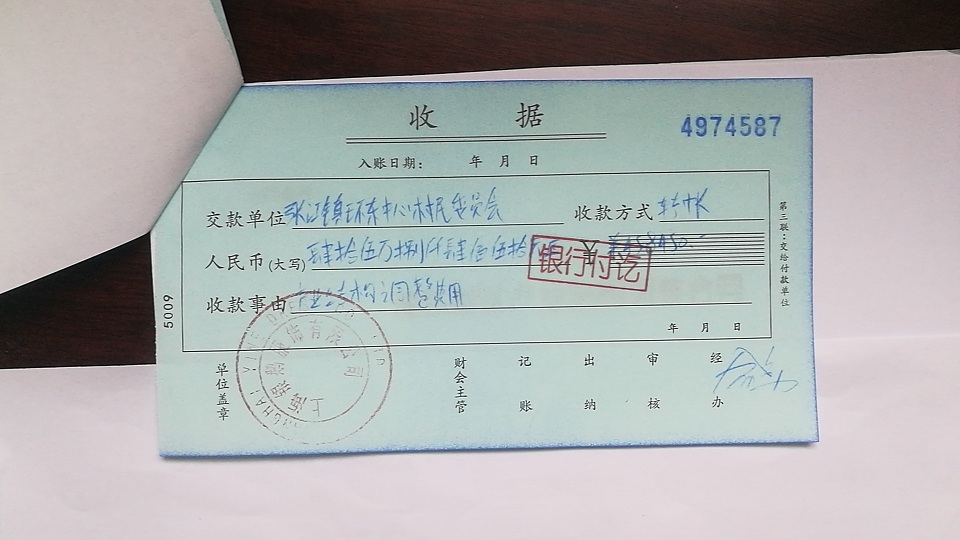 收 据
4974587
入账日期： 年 月 日
交款单位 张江镇环东中心村民委员会 收款方式 转帐
人民币(大写) 肆拾伍万捌仟肆佰伍拾元 ¥ 458450.-
银行付讫
收款事由 产业结构调整费用
年 月 日
第三联：交给付款单位
5009
单位盖章
财会主管 记账 出纳 审核 经办